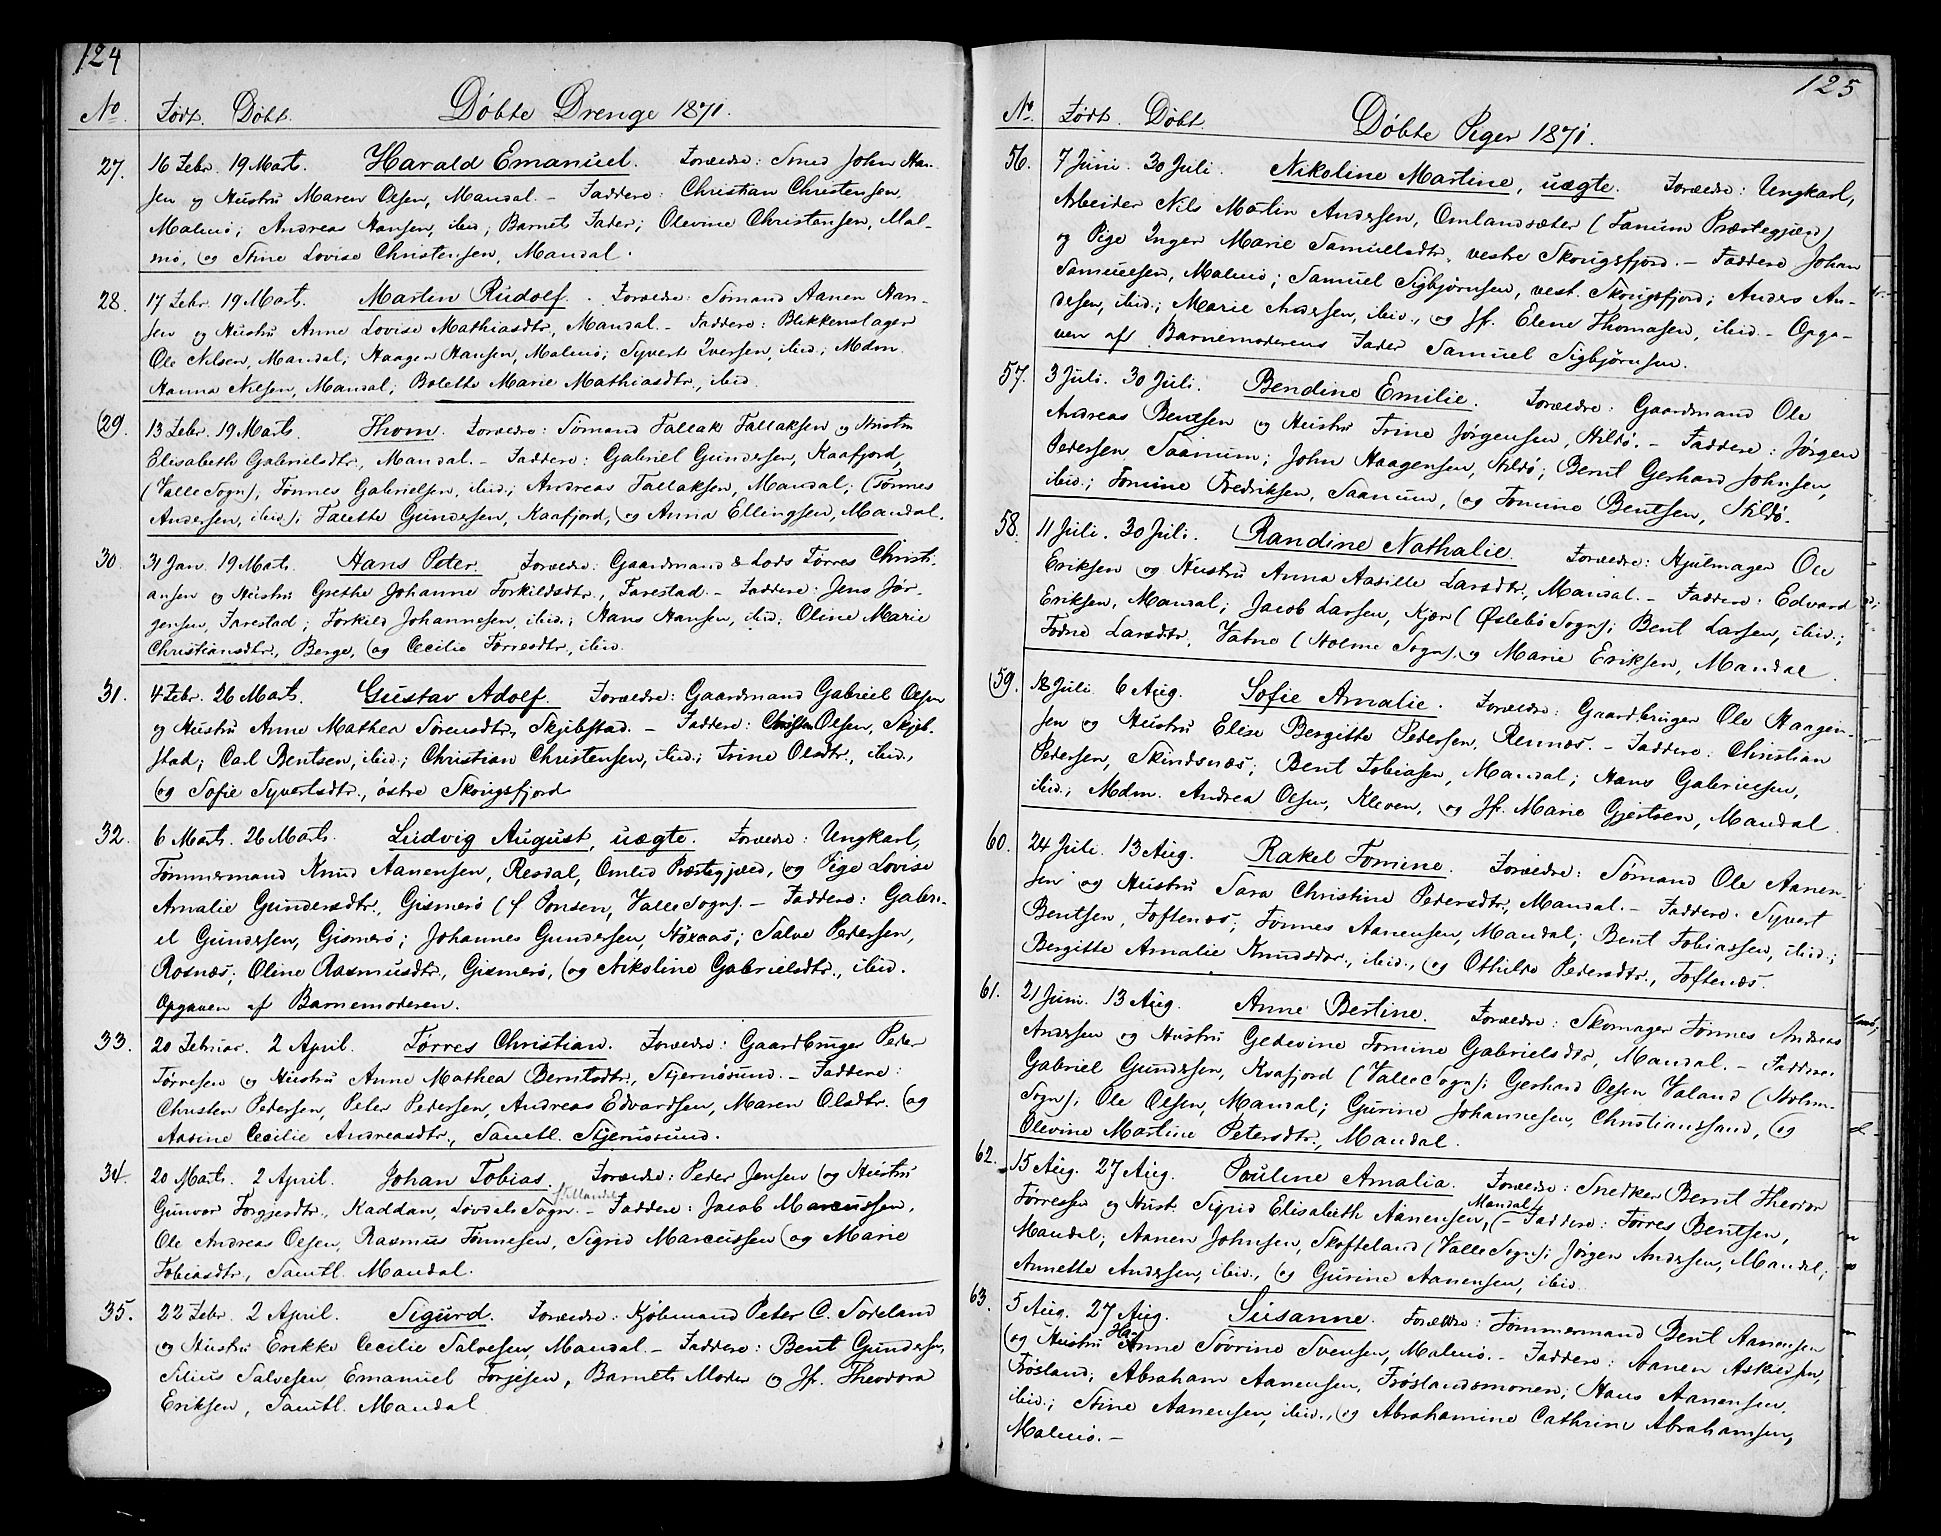 124
No. Født. Døbt. Døbte Drenge 1871.
27. 16 Febr. 19 Marts. Harald Emanuel. Forældre: Smed John Han-
sen og Hustru Maren Olsen, Mandal. – Faddere: Christian Christensen,
Malmø; Andreas Hansen, ibid; Barnets Fader; Olevine Christensen, Mal-
mø, og Stine Lovise Christensen, Mandal.
28. 17 Febr. 19 Marts. Martin Rudolf. Forældre: Sømand Aanen Han-
sen og Hustru Anne Lovise Mathiasdtr, Mandal. – Faddere: Blikkenslager
Ole Nilsen, Mandal; Haagen Hansen, Malmø; Syvert Iversen, ibid; Mdm.
Hanna Nilsen, Mandal; Bolette Marie Mathiasdtr, ibid.
29. 13 Febr. 19 Marts. Thom. Forældre: Sømand Tallak Tallaksen og Hustru
Elisabeth Gabrielsdtr., Mandal. – Faddere: Gabriel Gundersen, Kaafjord,
(Valle Sogn), Tønnes Gabrielsen, ibid.; Andreas Tallaksen, Mandal; (Tønnes
Andersen, ibid.); Talette Gundersen, Kaafjord, og Anna Ellingsen, Mandal.
30. 31 Jan. 19 Marts. Hans Peter. Forældre: Gaardmand & Lods Tørres Christi-
ansen og Hustru Grethe Johanne Torkildsdtr., Farestad. – Faddere: Jens Jør-
gensen, Farestad; Torkild Johannesen, ibid.; Hans Hansen, ibid; Oline Marie
Christiansdtr., Berge, og Cecilie Tørresdtr., ibid.
31. 4 Febr. 26 Marts. Gustav Adolf. Forældre: Gaardmand Gabriel Olsen
og Hustru Anne Mathea Sørensdtr, Skjebstad. – Faddere: Olsen, Skjeb-
stad; Carl Bentsen, ibid.; Christian Christensen, ibid.; Trine Olsdtr., ibid.,
og Sofie Syvertsdtr., østre Skougsfjord
32. 6 Marts. 26 Marts. Ludvig August, uægte. Forældre: Ungkarl,
Tømmermand Knud Aanensen, Resdal, Omlid Præstegjæld, og Pige Lovise
Amalie Gundersdtr., Gismerø (f. Ponsen, Valle Sogn). – Faddere: Gabri-
el Gundersen, Gismerø; Johannes Gundersen, Salve Pedersen,
Rosnæs; Oline Rasmusdtr., Gismerø, og Nikoline Gabrielsdtr., ibid.
Opgaven af Barnemoderen.
33. 20 Februar. 2 April. Tørres Christian. Forældre: Gaardbruger Peder
Tørresen og Hustru Anne Mathea Berntsdtr., Stjernøsund. – Faddere:
Christen Pedersen, Peter Pedersen, Andreas Edvardsen, Maren Olsdtr. og
Aasine Cecilie Andreasdtr., Samtl. Stjernøsund.
34. 20 Marts. 2 April. Johan Tobias. Forældre: Peder Jensen og Hustru
Gunvor Torgjesdtr., Kaddan, Løvdals Sogn. – Faddere: Jacob Marcussen,
Ole Andreas Olsen, Rasmus Tønnesen, Sigrid Marcussen og Marie
Tobiasdtr, Samtl. Mandal.
35. 22 Febr. 2 April. Sigurd. Forældre: Kjøbmand Peter C. Sodeland
og Hustru Erikke Cecilie Salvesen, Mandal. – Faddere: Bent Gundersen,
Silius Salvesen Emanuel Torjesen, Barnets Moder og Jf. Theodora
Eriksen, Samtl. Mandal
125
No. Født. Døbt. Døbte Piger 1871.
56. 7 Juni. 30 Juli. Nikoline Martine, uægte. Forældre: Ungkarl,
Arbeider Nils Martin Andersen, Omlandsæter (Fanum Præstegjæld)
og Pige Inger Marie Samuelsdtr., vestre Skougsfjord. – Faddere Johan
Samuelsen, Malmø; Samuel Sigbjørnsen, vest. Skougsfjord; Anders An-
dersen, ibid.; Marie Andersen, ibid., og Jf. Elene Thomasen, ibid. – Opga-
ven af Barnemoderens Fader Samuel Sigbjørnsen.
57. 3 Juli. 30 Juli. Bendine Emilie. Forældre: Gaardmand Ole
Andreas Bentsen og Hustru Trine Jørgensen, Hildø. – Faddere: Jørgen
Pedersen, Saanum; John Haagensen, Hildø; Bernt Gerhard Johnsen,
ibid.; Tomine Fredriksen, Saanum, og Tomine Bentsen, Hildø.
58. 11 Juli. 30 Juli. Randine Nathalie. Forældre: Hjulmager Ole
Eriksen og Hustru Anna Aasille Larsdtr., Mandal. – Faddere: Edvard
Eriksen, Mandal; Jacob Larsen, Kjær (Øslebø Sogn); Bent Larsen, ibid.;
Todne Larsdtr, Vatne (Holme Sogn), og Marie Eriksen, Mandal.
59. 18 Juli. 6 Aug. Sofie Amalie. Forældre: Gaardbruger Ole Haagen-
sen og Hustru Elise Bergitte Pedersen, Rennæs. – Faddere: Christian
Pedersen, Skindsnæs; Bent Tobiasen, Mandal; Hans Gabrielsen,
ibid.; Mdm. Andrea Olsen, Kleven, og Jf. Marie Gjertsen, Mandal.
60. 24 Juli. 13 Aug. Rakel Tomine. Forældre: Sømand Ole Aanen-
sen og Hustru Sara Christine Pedersdtr., Mandal. – Faddere: Syvert
Bentsen, Toftenæs; Tønnes Aanensen, Mandal; Bent Tobiassen, ibid.;
Bergitte Amalie Knudsdtr., ibid., og Othilde Pedersdtr., Toftenæs.
61. 21 Juni. 13 Aug. Anne Bertine. Forældre: Skomager Tønnes Andreas
Andersen og Hustru Gedevine Tomine Gabrielsdtr, Mandal. – Faddere:
Gabriel Gundersen, Kvafjord (Valle Sogn); Gerhard Olsen Valand (Holm-
Sogn); Ole Olsen, Mandal; Gurine Johannesen, Christianssand, og
Olevine Martine Petersdtr., Mandal.
62. 15 Aug. 27 Aug. Pauline Amalia. Forældre: Snedker Bernt Theodor
Tørressen og Hust. Sigrid Elisabeth Aanensen, Mandal. – Faddere: Tørres Bentsen,
Mandal; Aanen Johnsen, Skofteland (Valle Sogn); Jørgen Andersen, Mandal;
Annette Andersen, ibid., og Gurine Aanensen, ibid.
63. 5 Aug. 27 Aug. Susanne. Forældre: Tømmermand Bent Aanensen
og Hustru Anne Sovrine Svensen, Malmø. – Faddere: Aanen Askildsen,
Frøsland; Abraham Aanensen, Frøslandsmonen; Hans Aanensen,
ibid.; Stine Aanensen, ibid., og Abrahamine Cathrine Abrahamsen,
Malmø. –